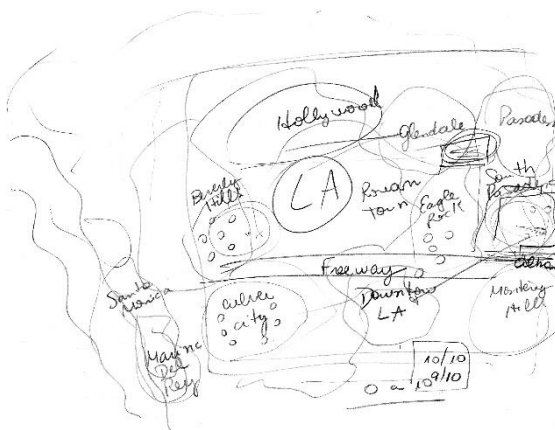 Hollywood
Glendale
Pasadena
Beverly
Hills
LA
Korean
town
Eagle
Rock
South
Pasadena
Freeway
Santa
Monica
Culver
City
Downtown
LA
Monterey
Hills
Marina
Del
Rey
10/10
9/10